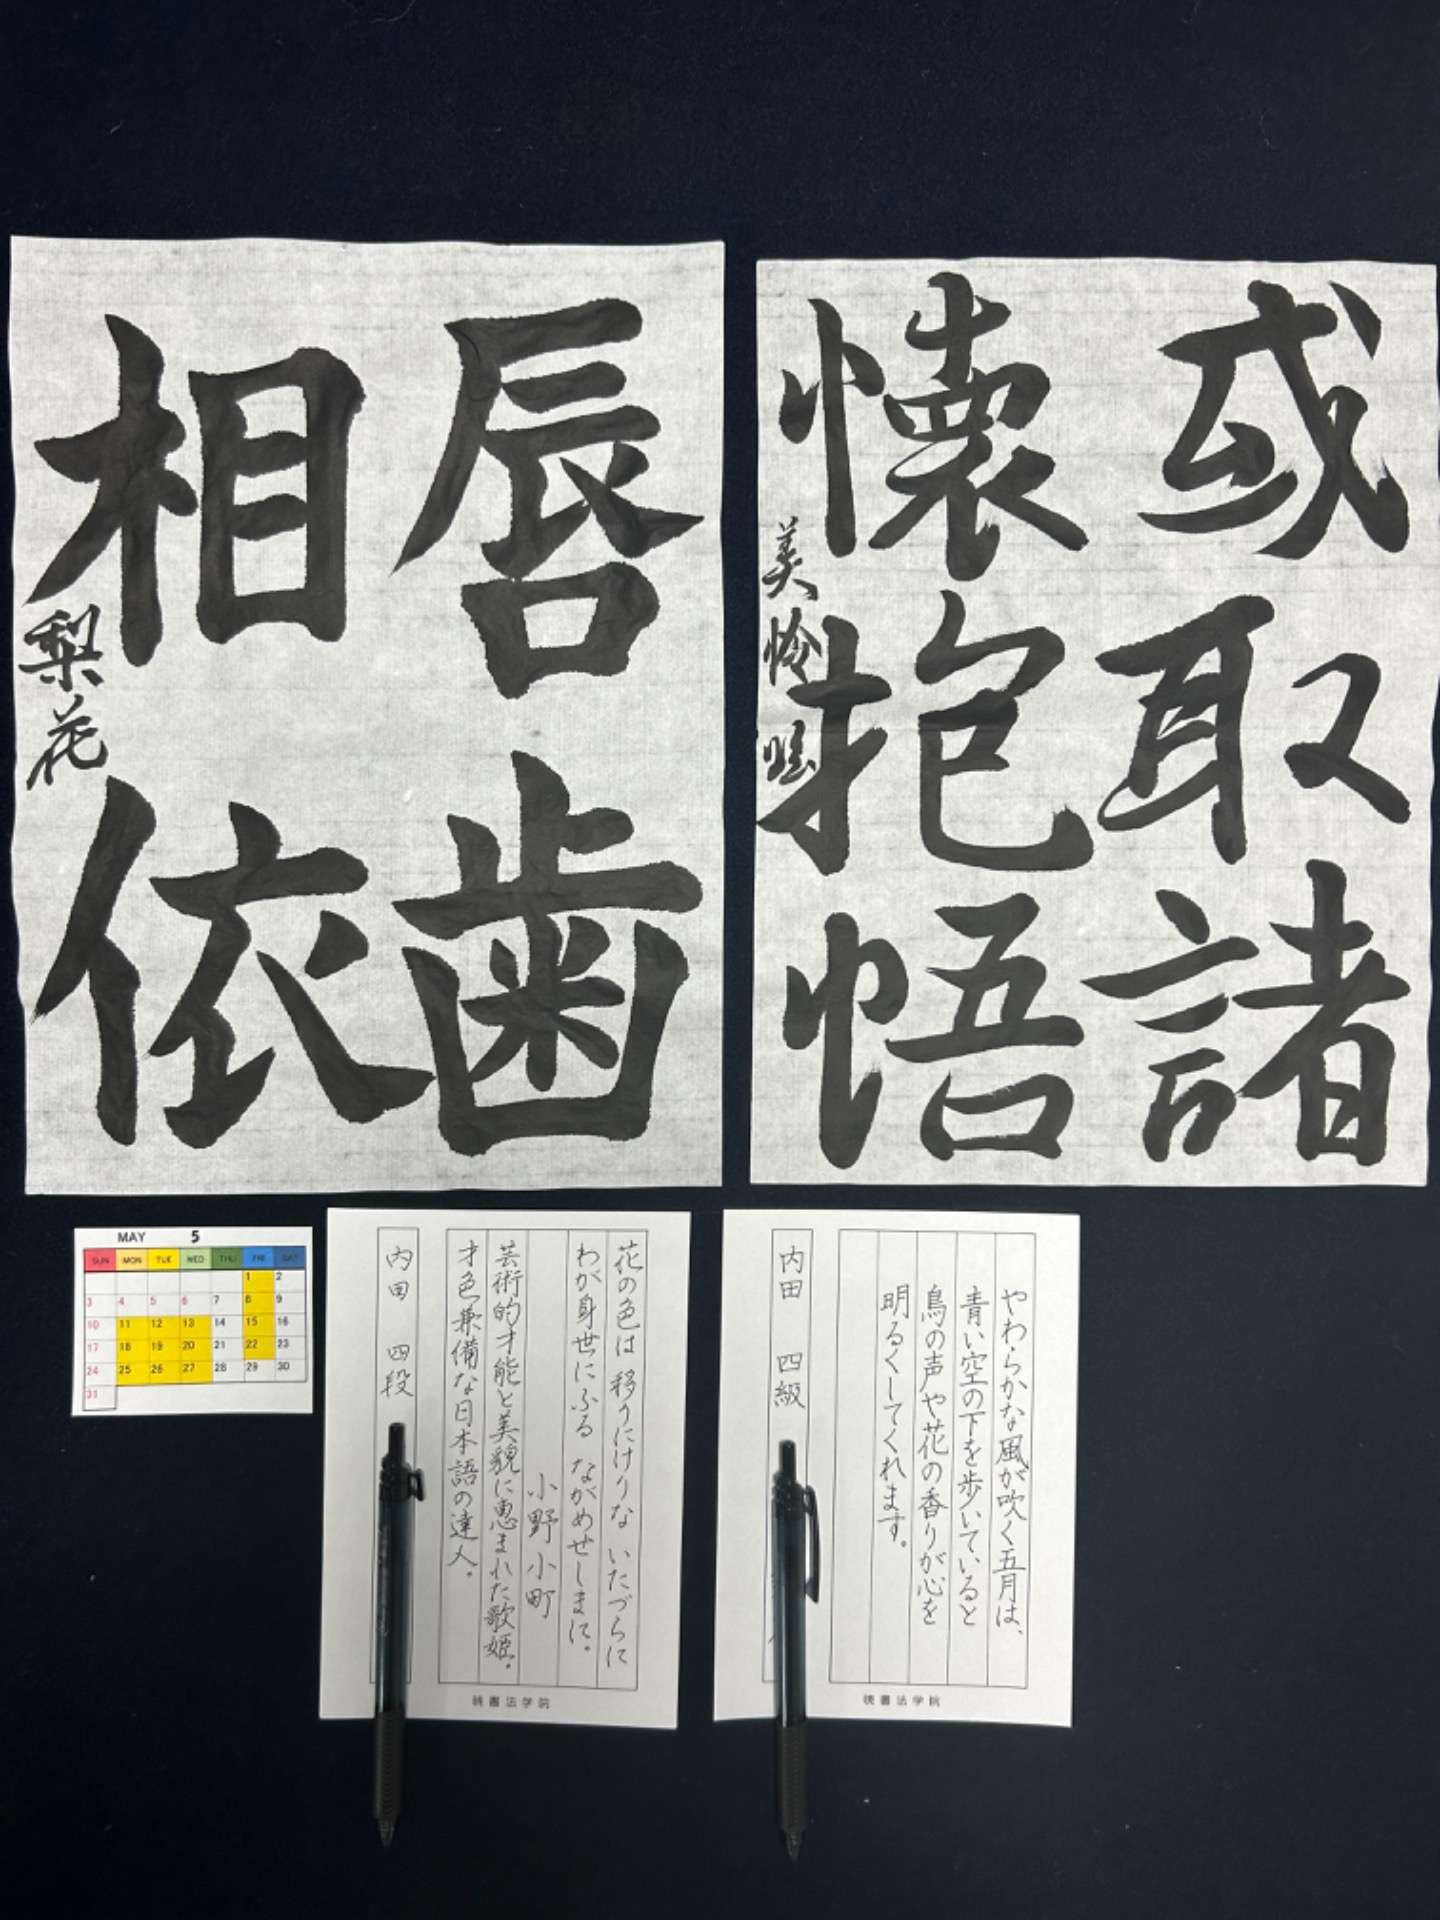 或取諸
懐抱悟
唇歯
相依
梨花
MAY 5
SUN MON TUE WED THU FRI SAT
1 2
3 4 5 6 7 8 9
10 11 12 13 14 15 16
17 18 19 20 21 22 23
24 25 26 27 28 29 30
31
花の色は 移りにけりな いたづらに
わが身世にふる ながめせしまに。
小野小町
芸術的才能と美貌に恵まれた歌姫。
才色兼備な日本語の達人。
内田 四段
暁書法学院
やわらかな風が吹く五月は、
青い空の下を歩いていると
鳥の声や花の香りが心を
明るくしてくれます。
内田 四級
暁書法学院